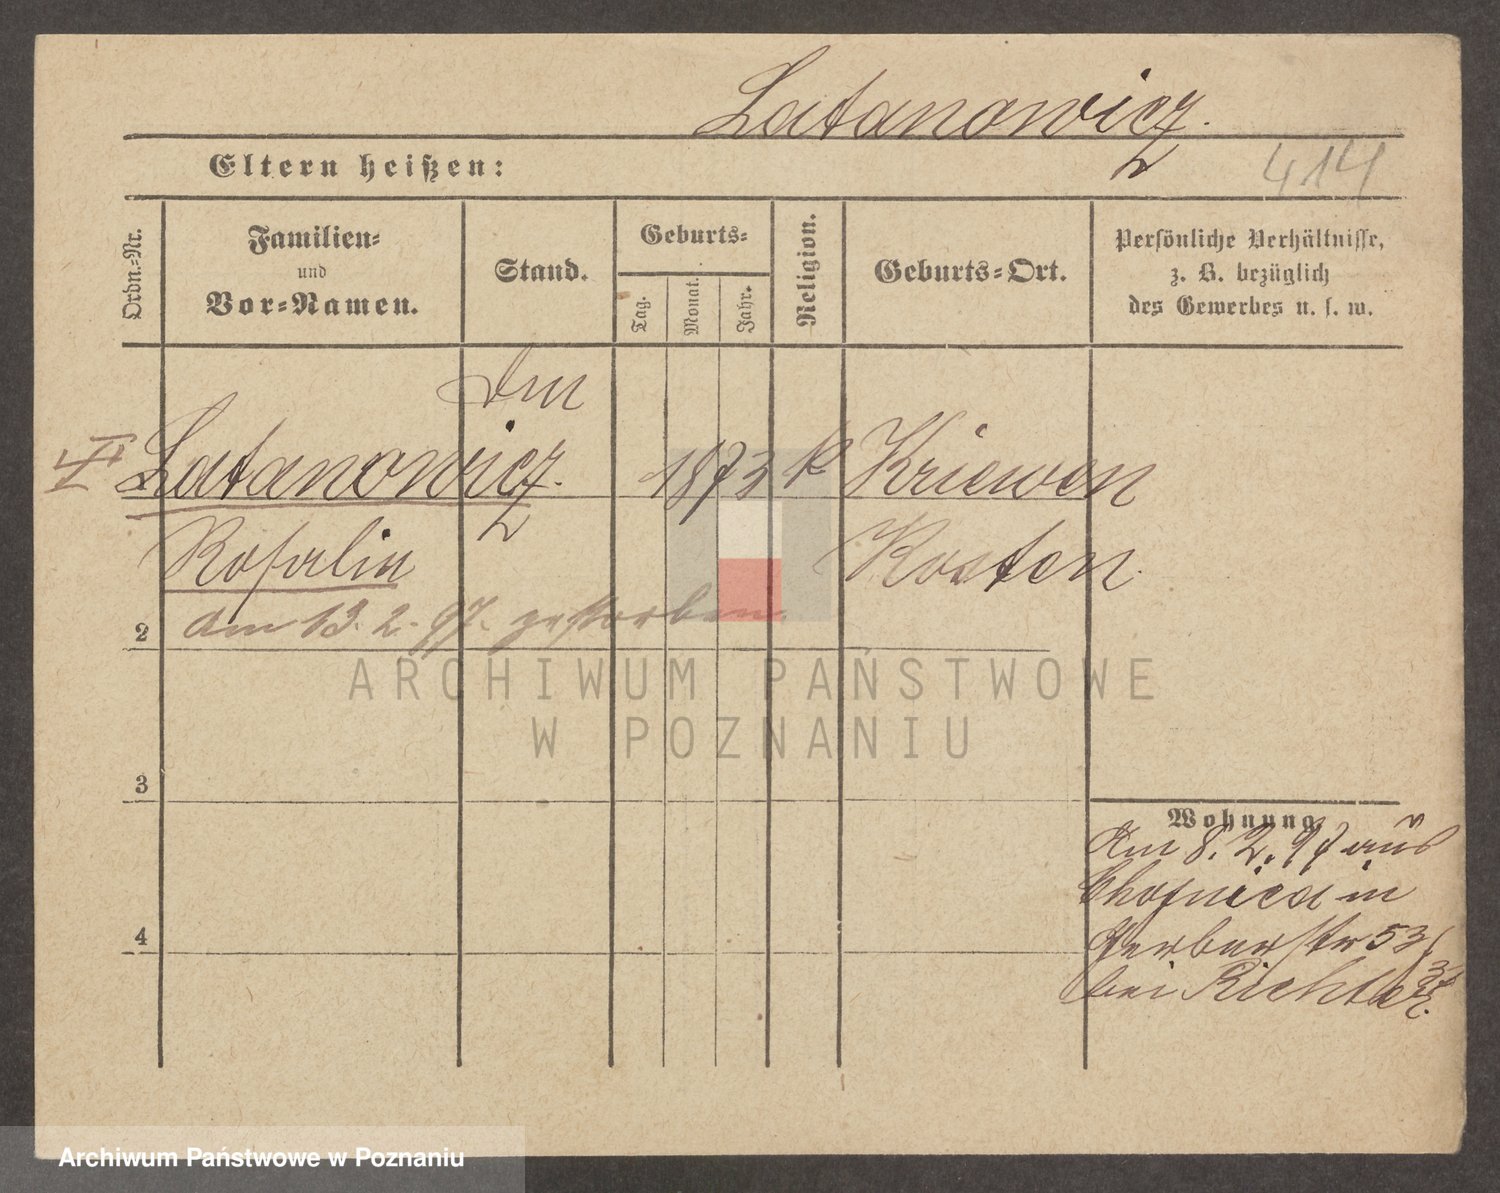 Latanowicz.
Eltern heißen:
414
Ordn.-Nr.
Familien-
und
Vor-Namen.
Stand.
Geburts-
Tag.
Monat.
Jahr.
Religion.
Geburts-Ort.
Persönliche Verhältnisse,
z. B. bezüglich
des Gewerbes u. s. w.
Latanowicz. 1873 k Kriewen
Rosalia Kosten
2 am 13. 2. 97. gestorben.
ARCHIWUM PAŃSTWOWE
W POZNANIU
3
Wohnung
Am 8. 2. 97 aus
in
4
Gerberstr 53
bei Richter
Archiwum Państwowe w Poznaniu